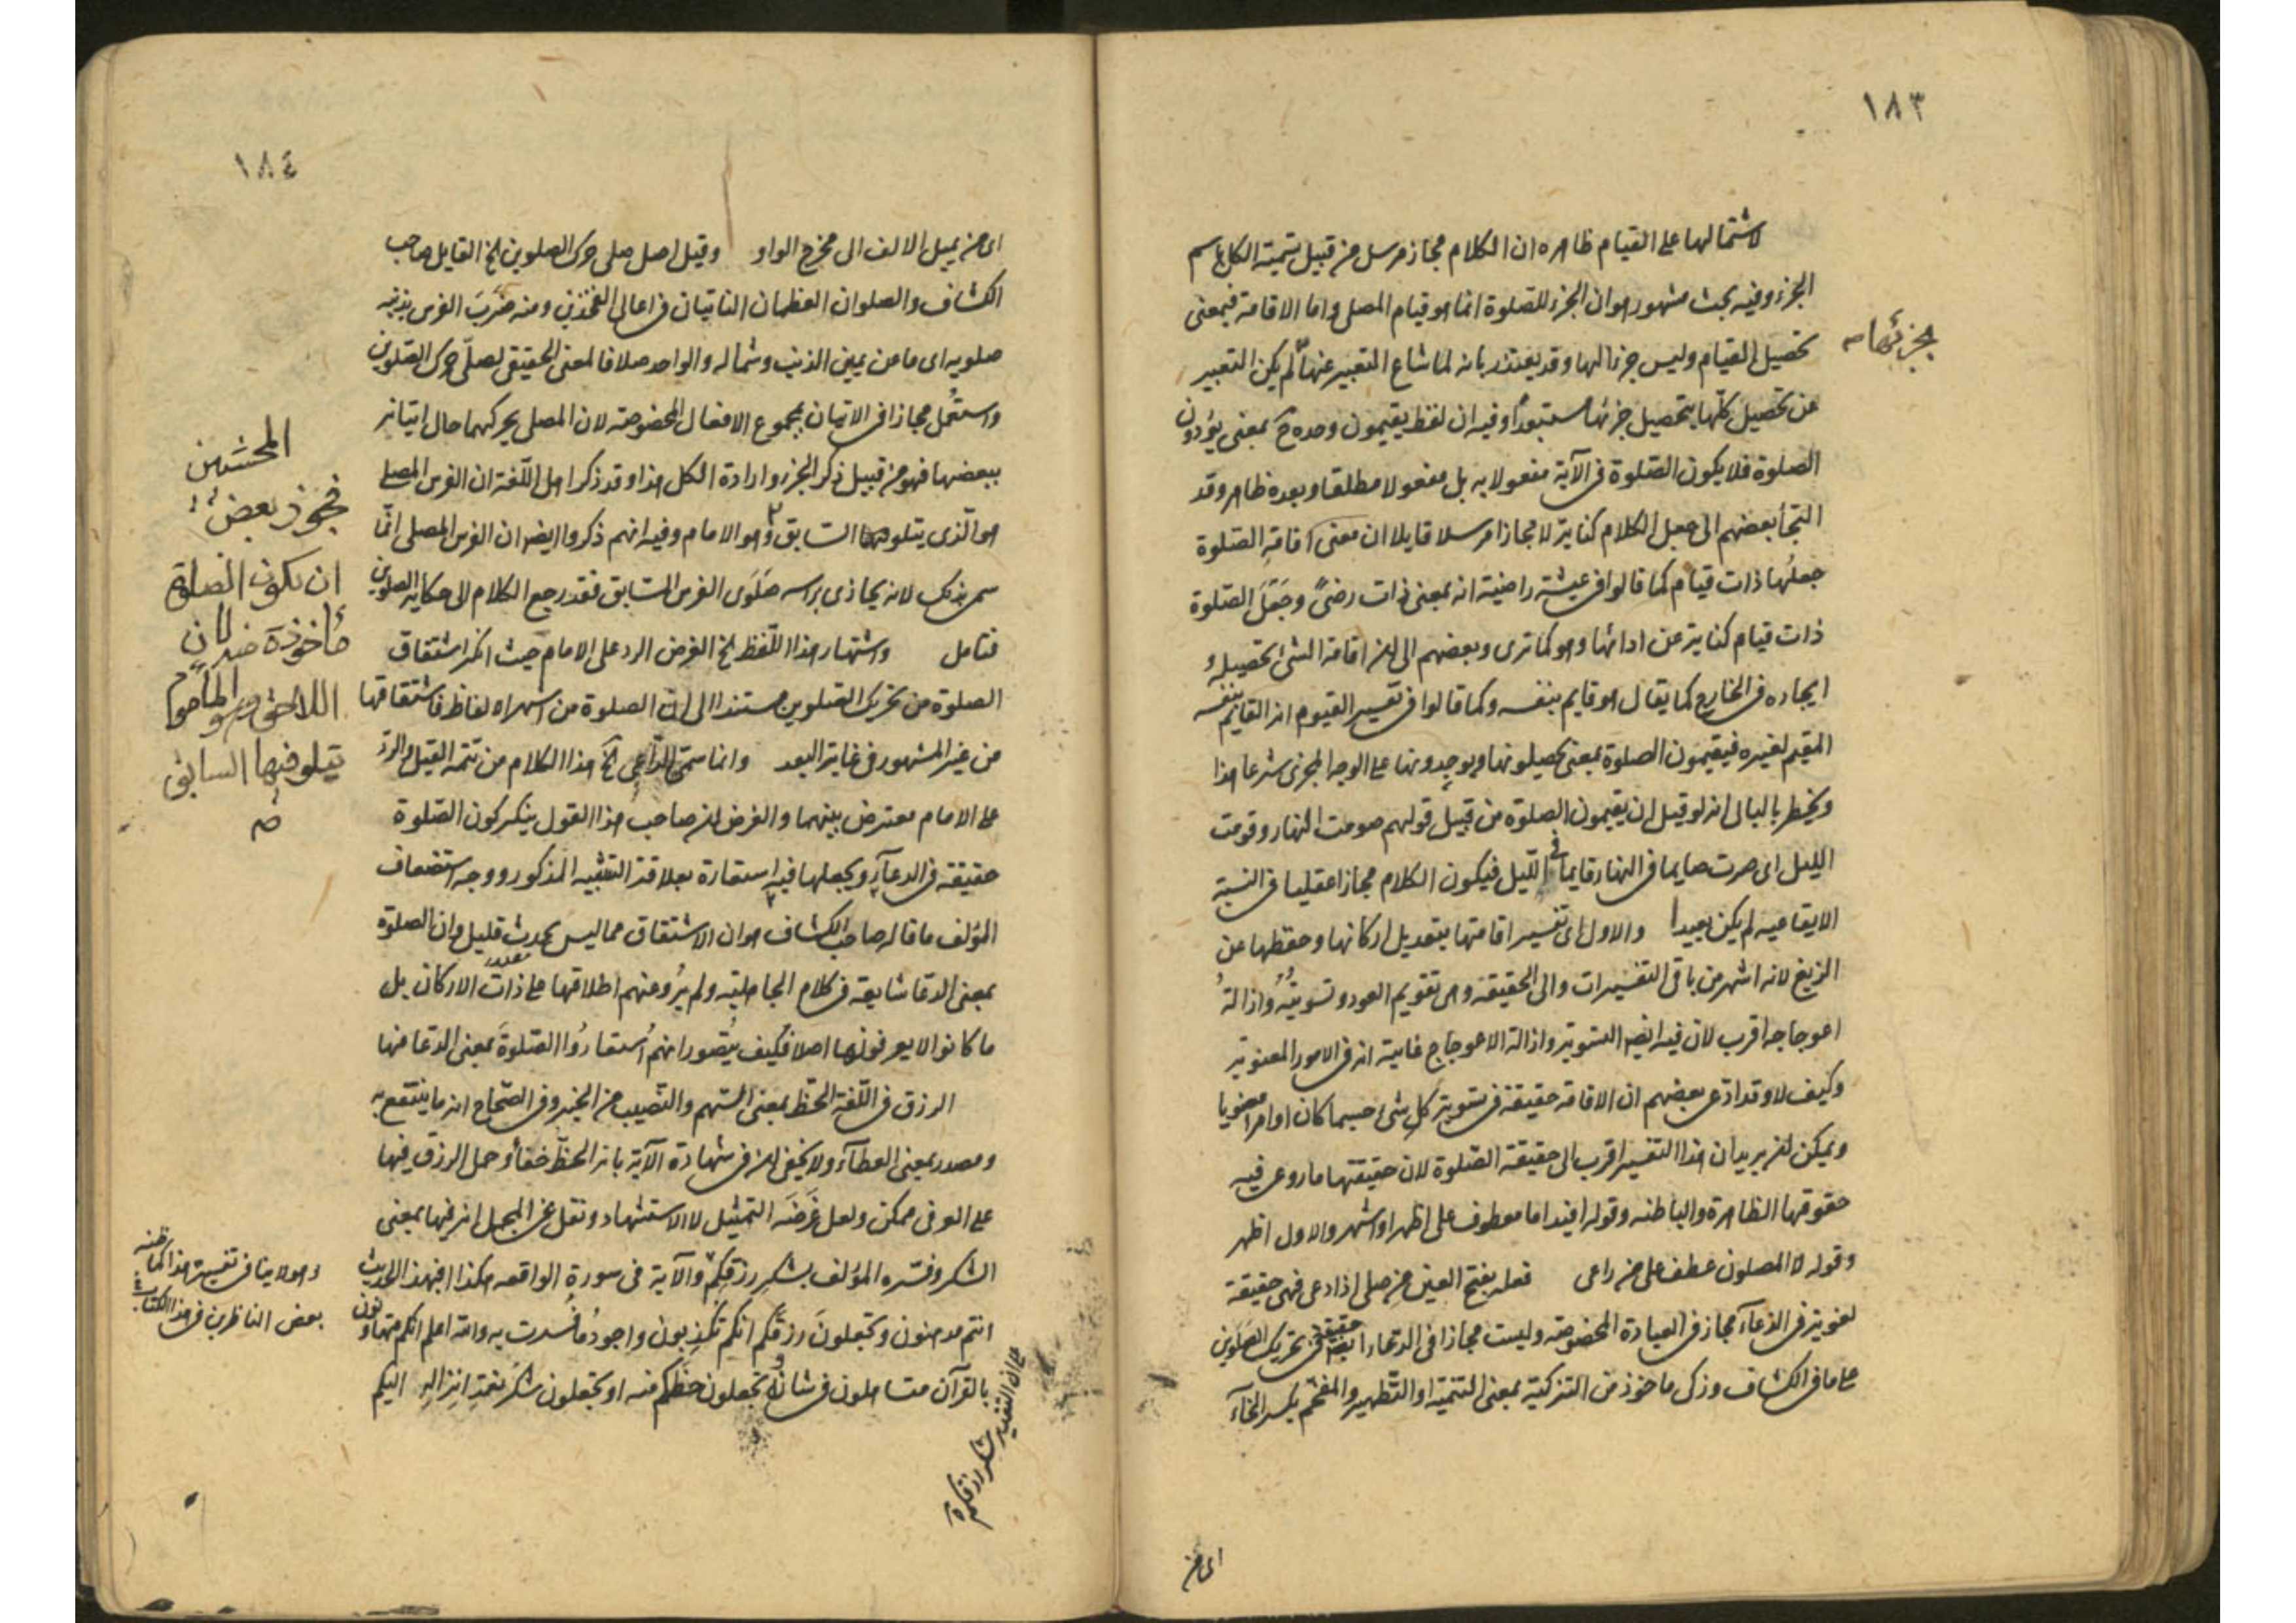 ١٨٣
لاشتمالها على القيام ظاهره ان الكلام مجاز مرسل من قبيل تسمية الكل باسم
الجزء وفيه بحث مشهور هو ان الجزء للصلوة انما هو قيام المصلى واما الاقامة فبمعنى
تحصيل القيام وليس جزءا لها وقد يعتذر بانه لما شاع التعبير عنها لم يكن التعبير
بجزئها
عن تحصيل كلها بتحصيل جزئها مستبعدا وفيه ان لفظ يقيمون وحده ح بمعنى يؤدون
الصلوة فلا يكون الصلوة فى الآية مفعولا به بل مفعولا مطلقا وبعده ظاهر وقد
التجأ بعضهم الى جعل الكلام كناية لا مجازا مرسلا قايلا ان معنى اقامة الصلوة
جعلها ذات قيام كما قالوا فى عيشة راضية انه بمعنى ذات رضىً وجَعَلَ الصلوة
ذات قيام كناية عن ادائها وهو كما ترى وبعضهم الى ان اقامة الشئ تحصيله و
ايجاده فى الخارج كما يقال هو قايم بنفسه وكما قالوا فى تفسير القيوم انه القايم بنفسه
المقيم لغيره فيقيمون الصلوة بمعنى يحصلونها ويوجدونها على الوجه المجزى شرعا هذا
ويخطر بالبال انه لو قيل ان يقيمون الصلوة من قبيل قولهم صومت النهار وقومت
الليل اى صرت صايما فى النهار قايما فى الليل فيكون الكلام مجازا عقليا فى النسبة
الايقاعيه لم يكن بعيدا والاول اى تفسير اقامتها بتعديل اركانها وحفظها عن
الزيغ لانه اشهر من باقى التفسيرات والى الحقيقة وهى تقويم العود وتسويتُهُ وازالةُ
اعوجاجه اقرب لان فيه ايضا التسوية وازالة الاعوجاج غايته انه فى الامور المعنوية
وكيف لا وقد ادعى بعضهم ان الاقامة حقيقة فى تسوية كل شئ حسيما كان او امرا معنويا
ويمكن ان يريد ان هذا التفسير اقرب الى حقيقة الصلوة لان حقيقتها ما روعى فيه
حقوقها الظاهرة والباطنه وقوله افيد اما معطوف على اظهر او اشهر والاول اظهر
وقوله لا المصلون عطف على من راعى فعلة بفتح العين من صلى اذا دعى فهى حقيقة
لغوية فى الدعاء مجاز فى العبادة المخصوصه وليست مجازا فى الدعاء ايضا حقيقة فى تحريك الصلوين
على ما فى الكشاف وزكى ماخوذ من التزكية بمعنى التنمية او التطهير والمفخم بكسر الخاء
اى من
١٨٤
اى من يميل الالف الى مخرج الواو وقيل اصل صلى حرك الصلوين الخ القايل صاحب
الكشاف والصلوان العظمان الناتيان فى اعالى الفخذين ومنه ضَرَبَ الفرس بذنبه
صلويه اى ما عن يمين الذنب وشماله والواحد صلا فالمعنى الحقيقى لصلى حرك الصلوين
واستعمل مجازا فى الاتيان بمجموع الافعال المخصوصة لان المصلى يحركهما حال اتيانه
ببعضها فهو من قبيل ذكر الجزء وارادة الكل هذا وقد ذكر اهل اللغة ان الفرس المصلى
هو الذى يتلو السابق وهو الامام وفيه انهم ذكروا ايضا ان الفرس المصلى انما
سمى بذلك لانه يحاذى براسه صَلَوَى الفرس السابق فقد رجع الكلام الى حكاية الصلوين
فتامل واشتهار هذا اللفظ الخ الغرض الرد على الامام حيث انكر اشتقاق
الصلوة من تحريك الصلوين مستندا الى ان الصلوة من اشهر الالفاظ فاشتقاقها
من غير المشهور فى غاية البعد وانما سمى الداعى الخ هذا الكلام من تتمة القيل والرد
على الامام معترض بينهما والغرض ان صاحب هذا القول ينكر كون الصلوة
حقيقة فى الدعاء ويجعلها فيه استعارة بعلاقة التشبيه المذكور ووجه استضعاف
المؤلف ما قاله صاحب الكشاف هو ان الاشتقاق مما ليس بحدث قليل وان الصلوة
بمعنى الدعا شايعة فى كلام الجاهلية ولم يُرو عنهم اطلاقها على ذات الاركان بل
ما كانوا لا يعرفونها اصلا فكيف يُتصور انهم استعارُوا الصلوةَ بمعنى الدعا منها
الرزق فى اللغة الحظ بمعنى السهم والنصيب من الخير وفى الصحاح انه ما ينتفع به
ومصدر بمعنى العطاء ولا يخفى ان فى شهادة الآية بانه الحظ خفأ وحمل الرزق فيها
على العرفى ممكن ولعل غَرَضَه التمثيل لا الاستشهاد ونقل عن المجمل انه فيها بمعنى
الشكر وفسره المؤلف بشكر رزقكم والآية فى سورة الواقعه هكذا افبهذا الحديث
انتم مدهنون وتجعلونَ رزقكم انكم تكذبون واجود ما فُسرت به والله اعلم انكم متهاونون
بالقرآن متساهلون فى شانه وتجعلون حظكم منه او تجعلون شكر نعمة انزاله اليكم
المحشين
فجوز بعض
ان يكون الصلوة
مأخوذة منه لان
اللاحق وهو المأموم
يتلو فيها السابق
وهو لا ينافى تفسيره هذا كما ظنه
بعض الناظرين فى هذا الكتاب
على ان التقدير شكر رزقكم